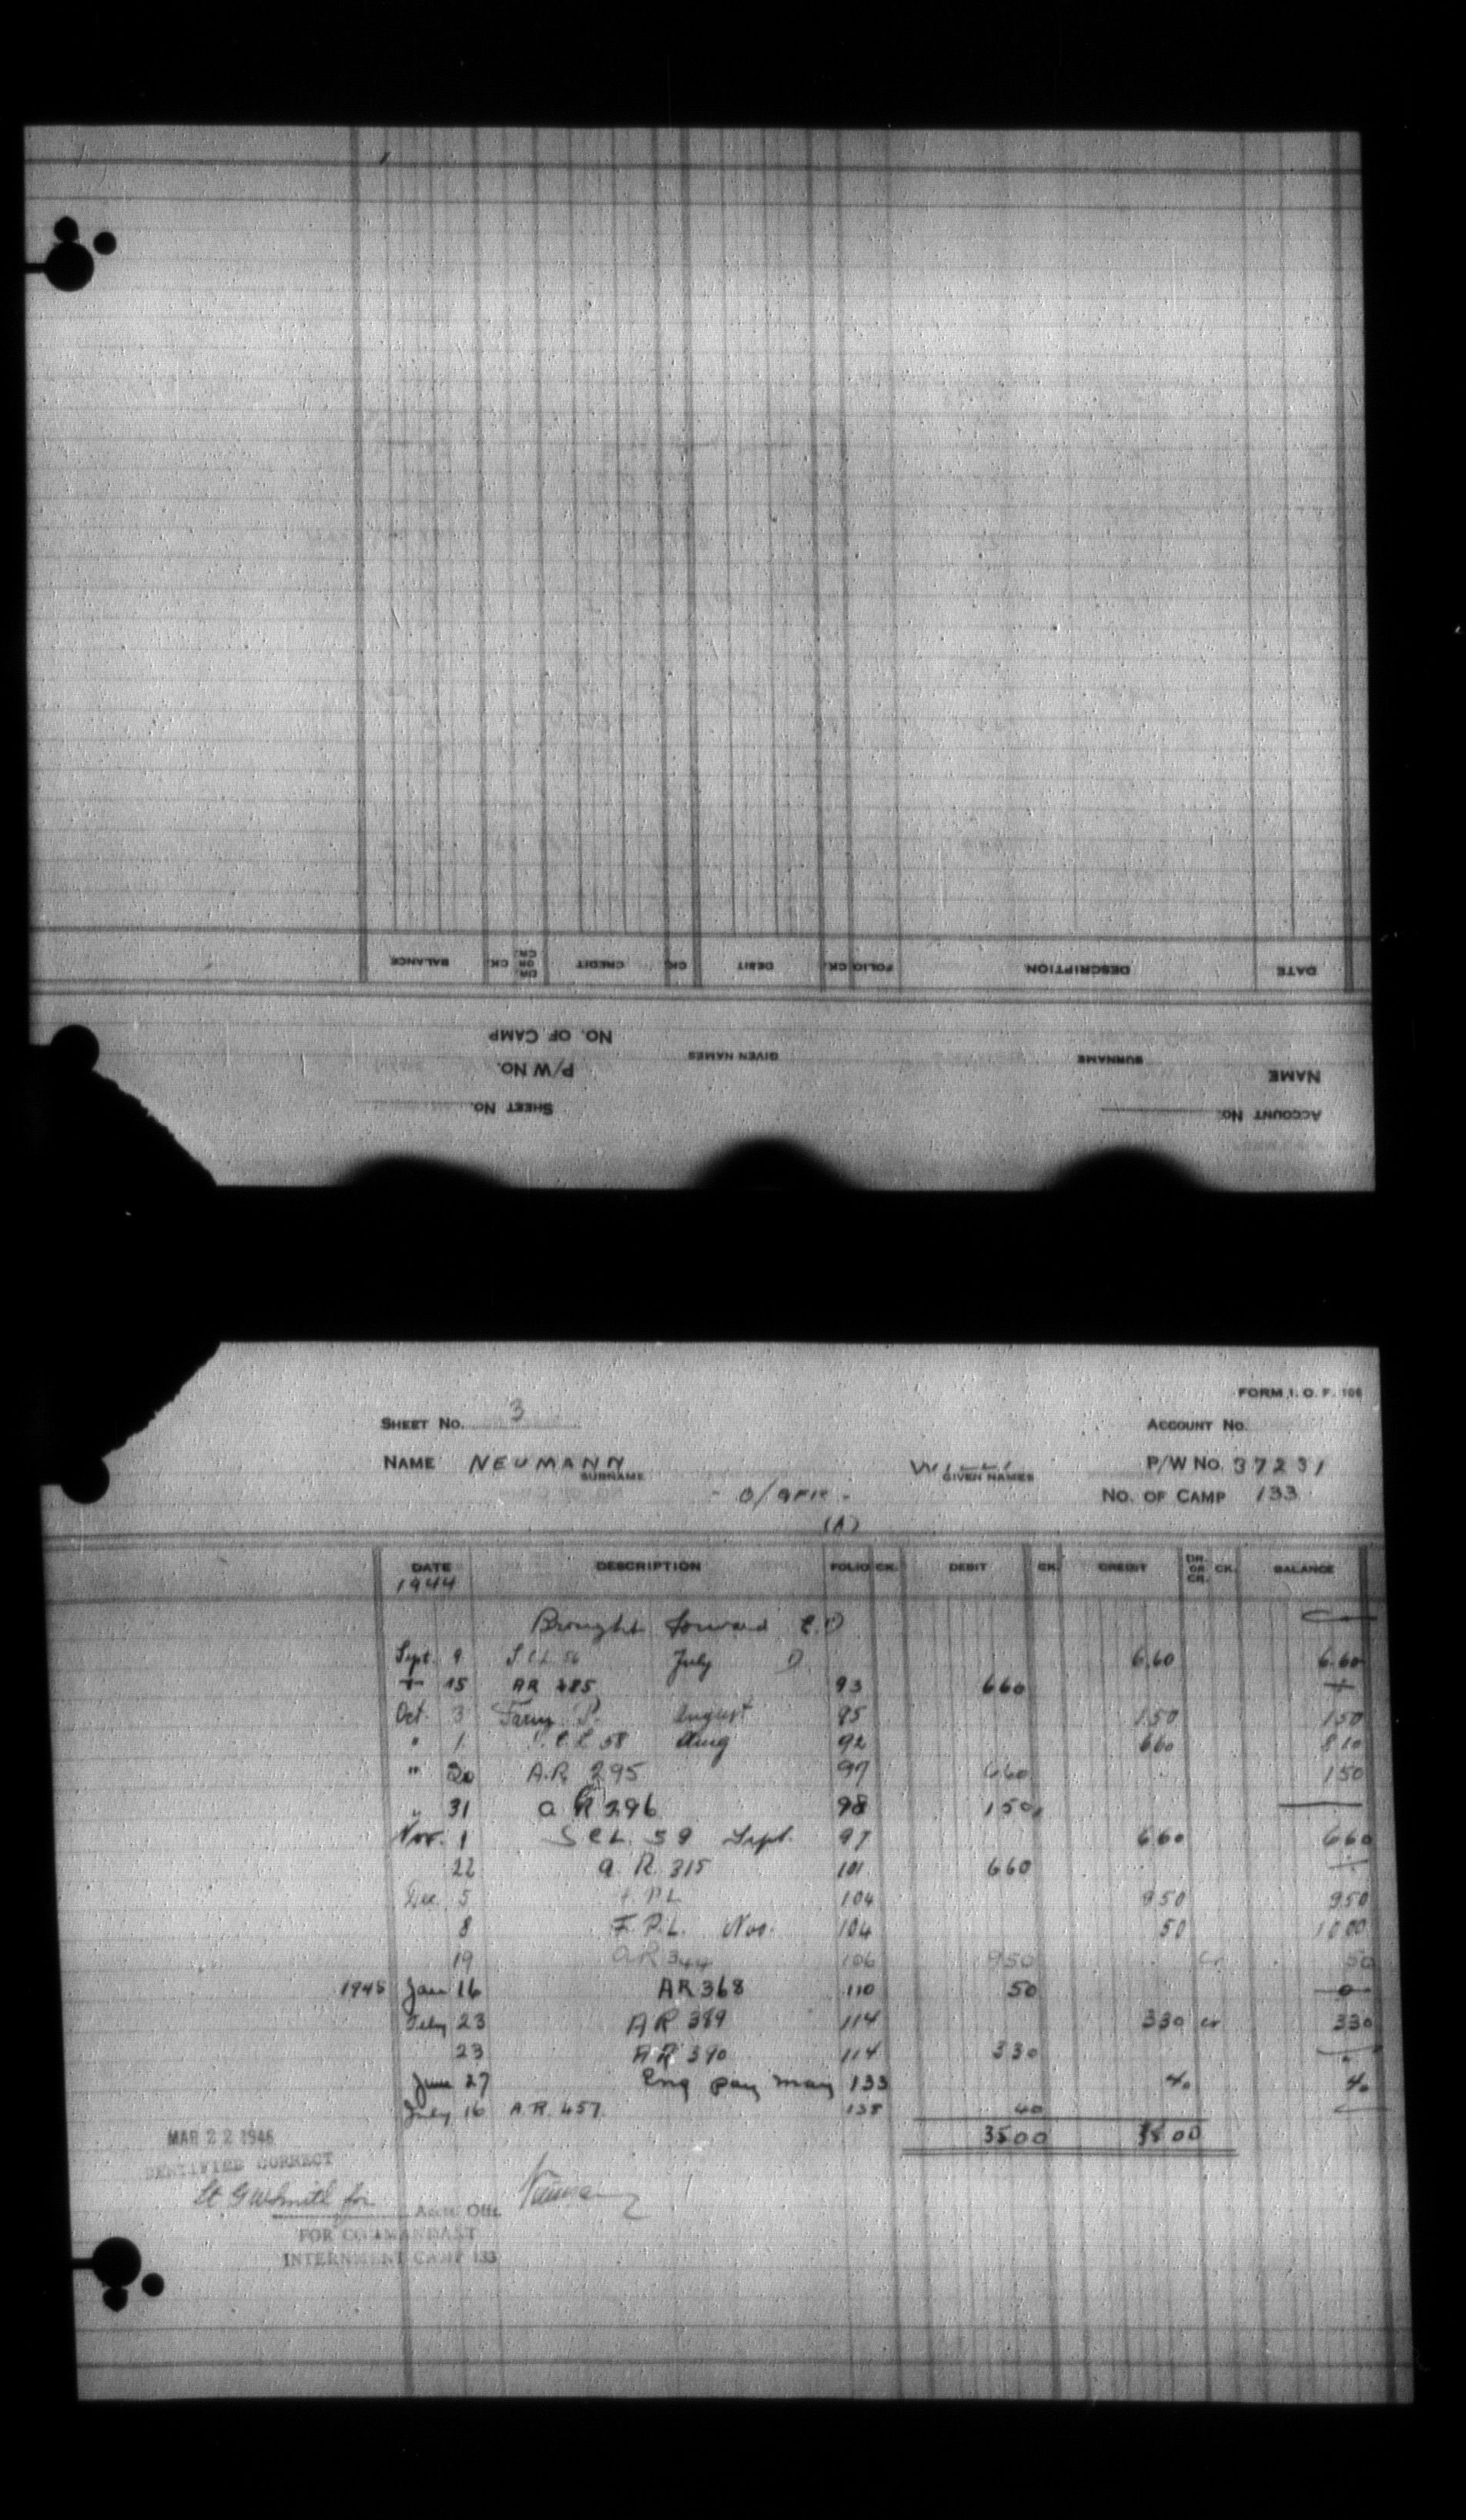 BALANCE CK. DR. OR CR. CREDIT CK. DEBIT CK. FOLIO DESCRIPTION DATE
NO. OF CAMP
GIVEN NAMES SURNAME
P/W NO. NAME
SHEET NO. ACCOUNT NO.
FORM I. O. F. 106
SHEET NO. 3 ACCOUNT NO.
NAME NEUMANN WILLI P/W NO. 37231
SURNAME GIVEN NAMES
NO. OF CAMP 133
(A)
DATE DESCRIPTION FOLIO CK. DEBIT CK. CREDIT DR. OR CR. CK. BALANCE
1944
Brought forward
Sept. 9 S.C.L. 56 July 6.60 6.60
15 AR 285 93 660
Oct. 3 Farm P. August 85 150 150
" 1 S.C.L 58 Aug 92 660 810
" 20 A.R. 295 97 660 150
" 31 a R 296 98 150
Nov. 1 SCL. 59 Sept. 97 660 660
22 a. R. 315 101 660
Dec. 5 F.P.L 104 950 950
8 F.P.L. Nov. 104 50 1000
19 aR 344 106 950 Cr 50
1945 Jan 16 AR 368 110 50 0
Feby 23 AR 389 114 330 cr 330
23 AR 390 114 330
June 27 Eng pay may 133 40 40
July 16 A.R. 457 138 40
3500 3500
MAR 22 1946
CERTIFIED CORRECT
Lt GWSmith for Acct. Offr.
FOR COMMANDANT
INTERNMENT CAMP 133